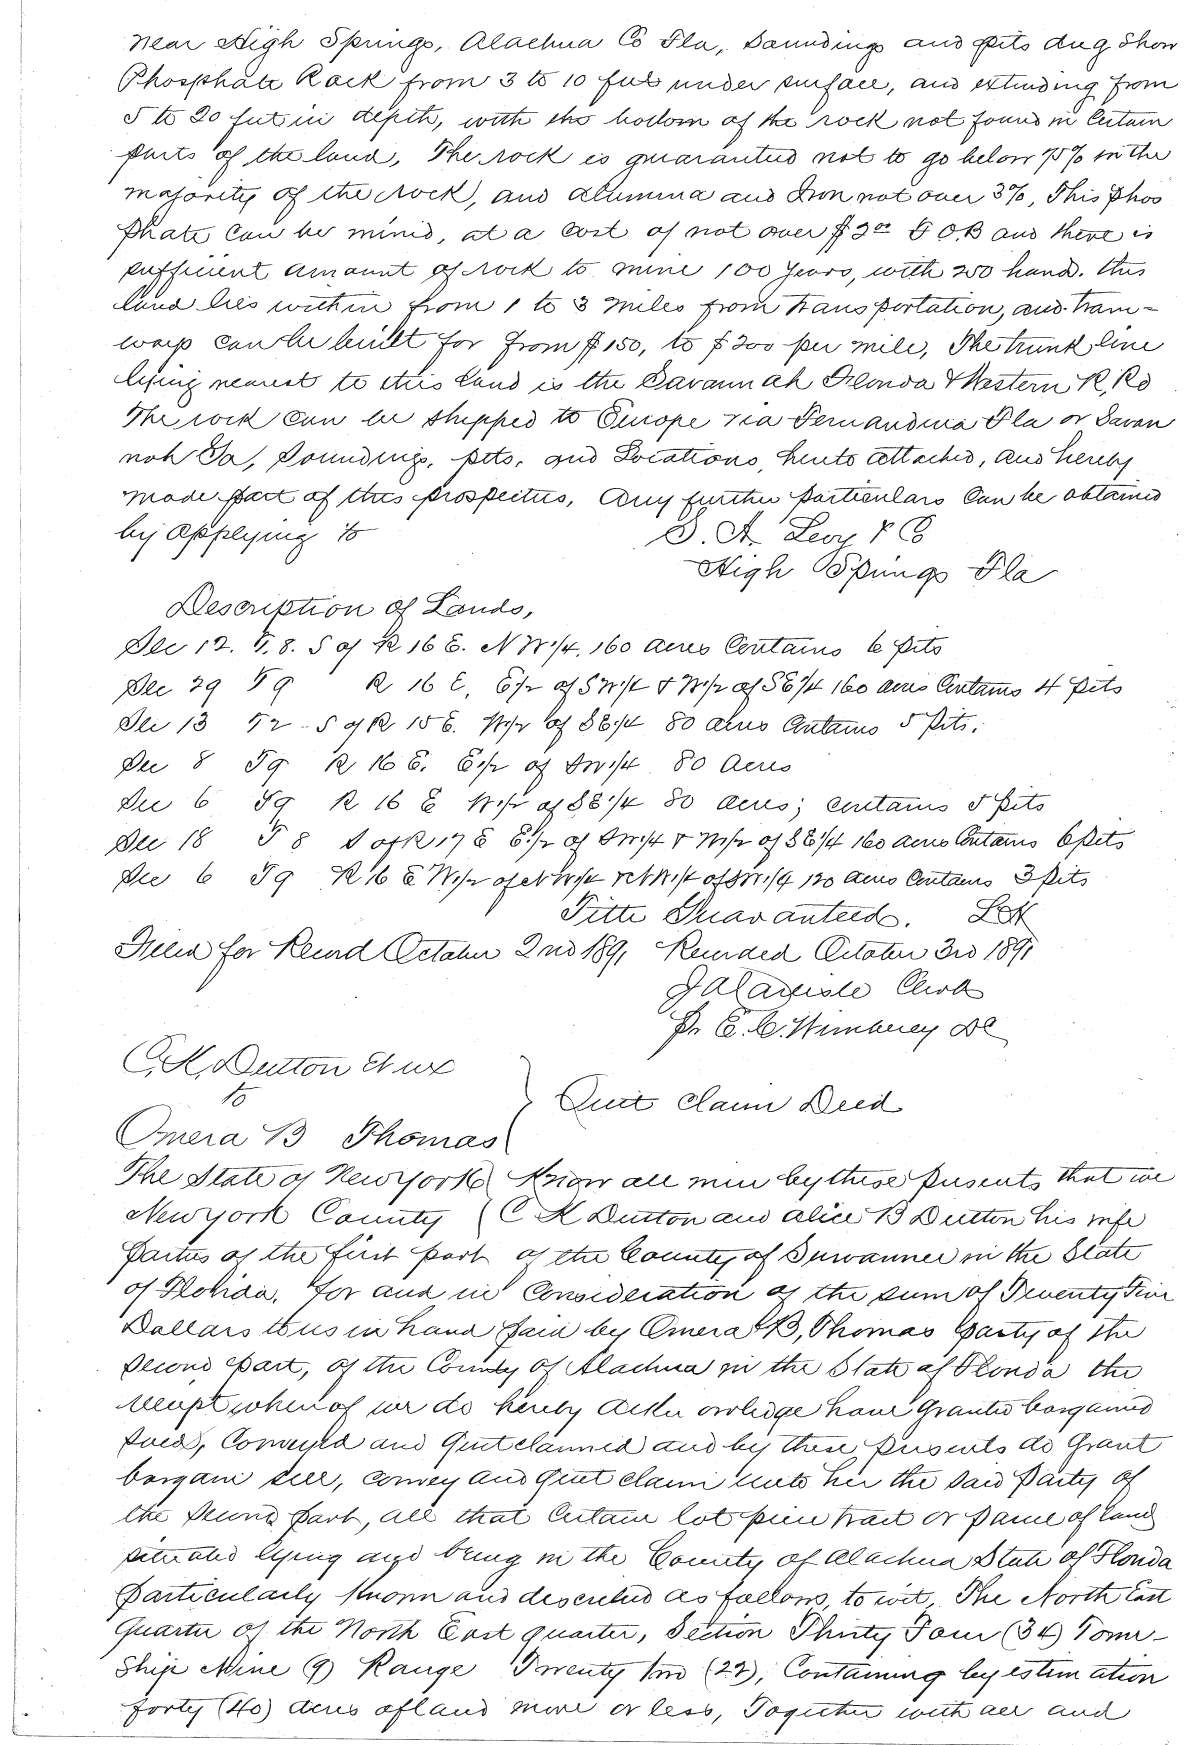 near High Springs, Alachua Co Fla, Soundings and pits dug Show
Phosphate Rock from 3 to 10 feet under surface, and extending from
5 to 20 feet in depth, with the bottom of the rock not found in Certain
parts of the land, The rock is guaranteed not to go below 75% in the
majority of the rock, and alumina and Iron not over 3%, This phos
phate Can be mined, at a Cost of not over $2 00 F O.B and there is
sufficient amount of rock to mine 100 years, with 200 hand. this
land lies within from 1 to 3 miles from transportation, and tram-
ways can be built for from $150, to $200 per mile, The trunk line
lying nearest to this land is the Savannah Florida & Western R, Rd
The rock can be shipped to Europe via Fernandina Fla or Savan
nah Ga, Soundings, pits, and Locations, hereto attached, and hereby
made part of this prospectus, Any further particulars Can be obtained
by applying to S. A. Levy & Co
High Springs Fla
Description of Lands,
Sec 12. T. 8. S of R 16 E. N W 1/4, 160 acres Contains 6 pits
Sec 29 T 9 R 16 E, E 1/2 of S W 1/4 & W 1/2 of S E 1/4 160 acres Contains 4 pits
Sec 13 T 2 S of R 15 E. W 1/2 of S E 1/4 80 acres Contains 5 Pits.
Sec 8 T 9 R 16 E. E 1/2 of S W 1/4 80 Acres
Sec 6 T 9 R 16 E W 1/2 of S E 1/4 80 acres; contains 5 pits
Sec 18 T 8 S of R 17 E E 1/2 of S W 1/4 & W 1/2 of S E 1/4 160 acres Contains 6 Pits
Sec 6 T 9 R 16 E W 1/2 of N W 1/4 & N W 1/4 of S W 1/4 120 acres Contains 3 pits
Title Guaranteed.
Filed for Record October 2nd 1891 Recorded October 3rd 1891
J A Carlisle Clerk
Pr E. C. Wimberley DC
C. K. Dutton et ux
to
Quit Claim Deed
Omera B Thomas
The State of New York Know all men by these presents that we
New York County C K Dutton and Alice B Dutton his wife
Parties of the first part of the County of Suwannee in the State
of Florida, for and in Consideration of the sum of Twenty Five
Dollars to us in hand paid by Omera B, Thomas party of the
second part, of the County of Alachua in the State of Florida the
receipt whereof we do hereby acknowledge have granted bargained
sold, Conveyed and Quit claimed and by these presents do Grant
bargain sell, convey and Quit claim unto her the said Party of
the second part, all that Certain lot piece tract or parcel of land
situated lying and being in the County of Alachua State of Florida
particularly known and described as follows, to wit, The North East
Quarter of the North East quarter, Section Thirty Four (34) Town-
Ship Nine (9) Range Twenty two (22), Containing by estimation
forty (40) acres of land more or less, Together with all and